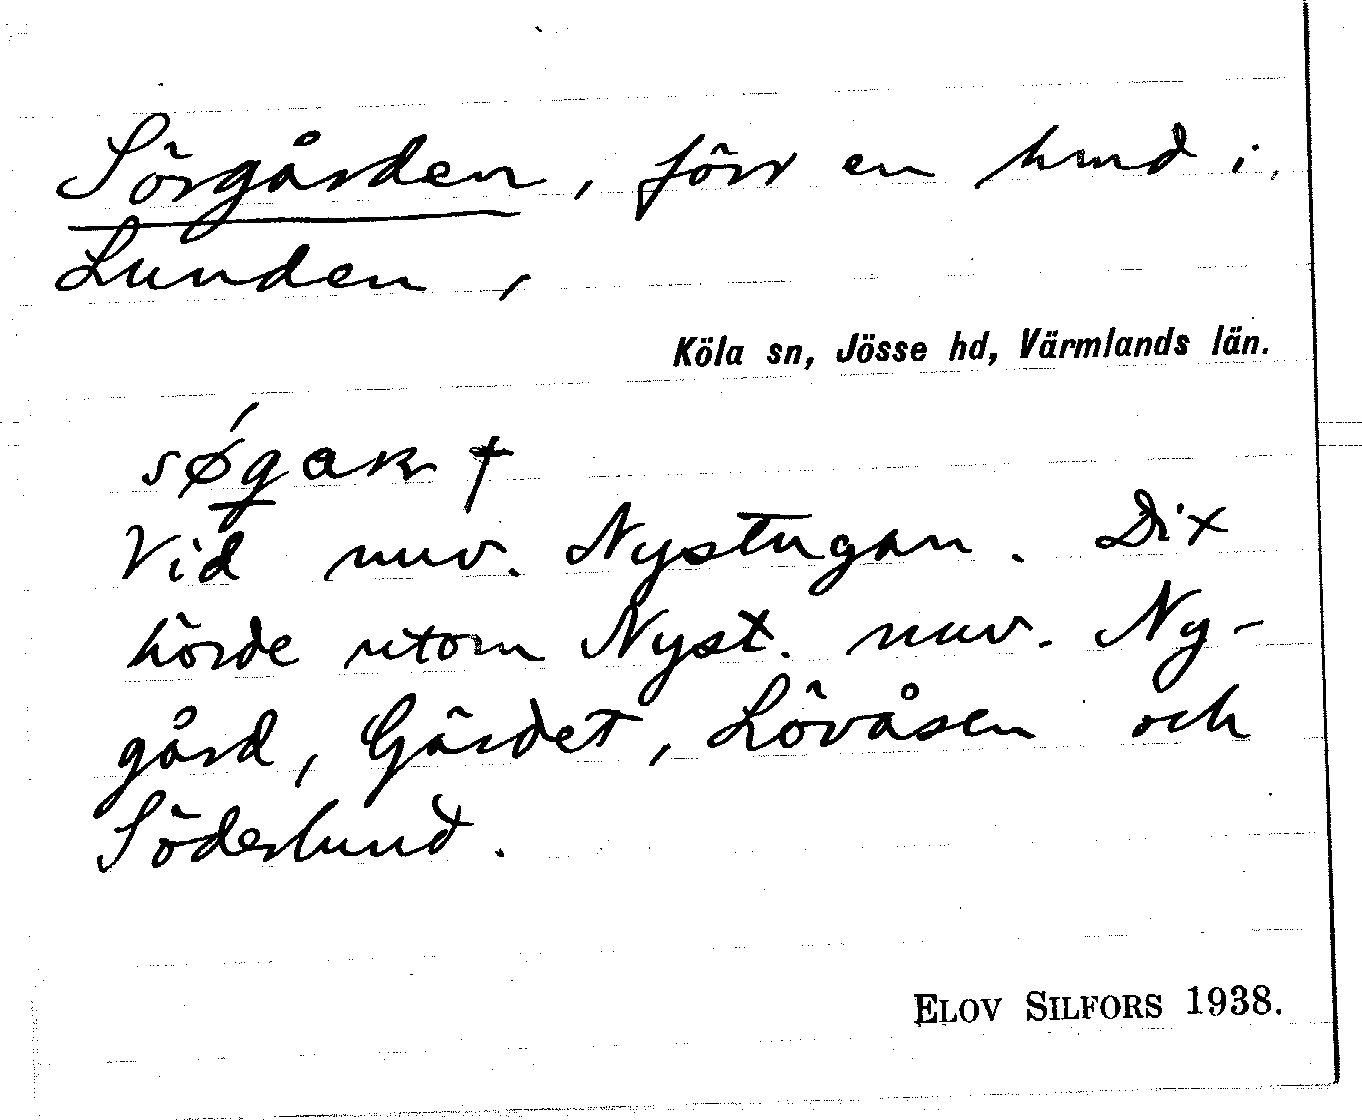 Sörgården, förr en hmd i
Lunden,
Köla sn, Jösse hd, Värmlands län.
Vid nuv. Nystugan. Dit
hörde utom Nyst. nuv. Ny-
gård, Gärdet, Lövåsen och
Söderlund.
ELOV SILFORS 1938.